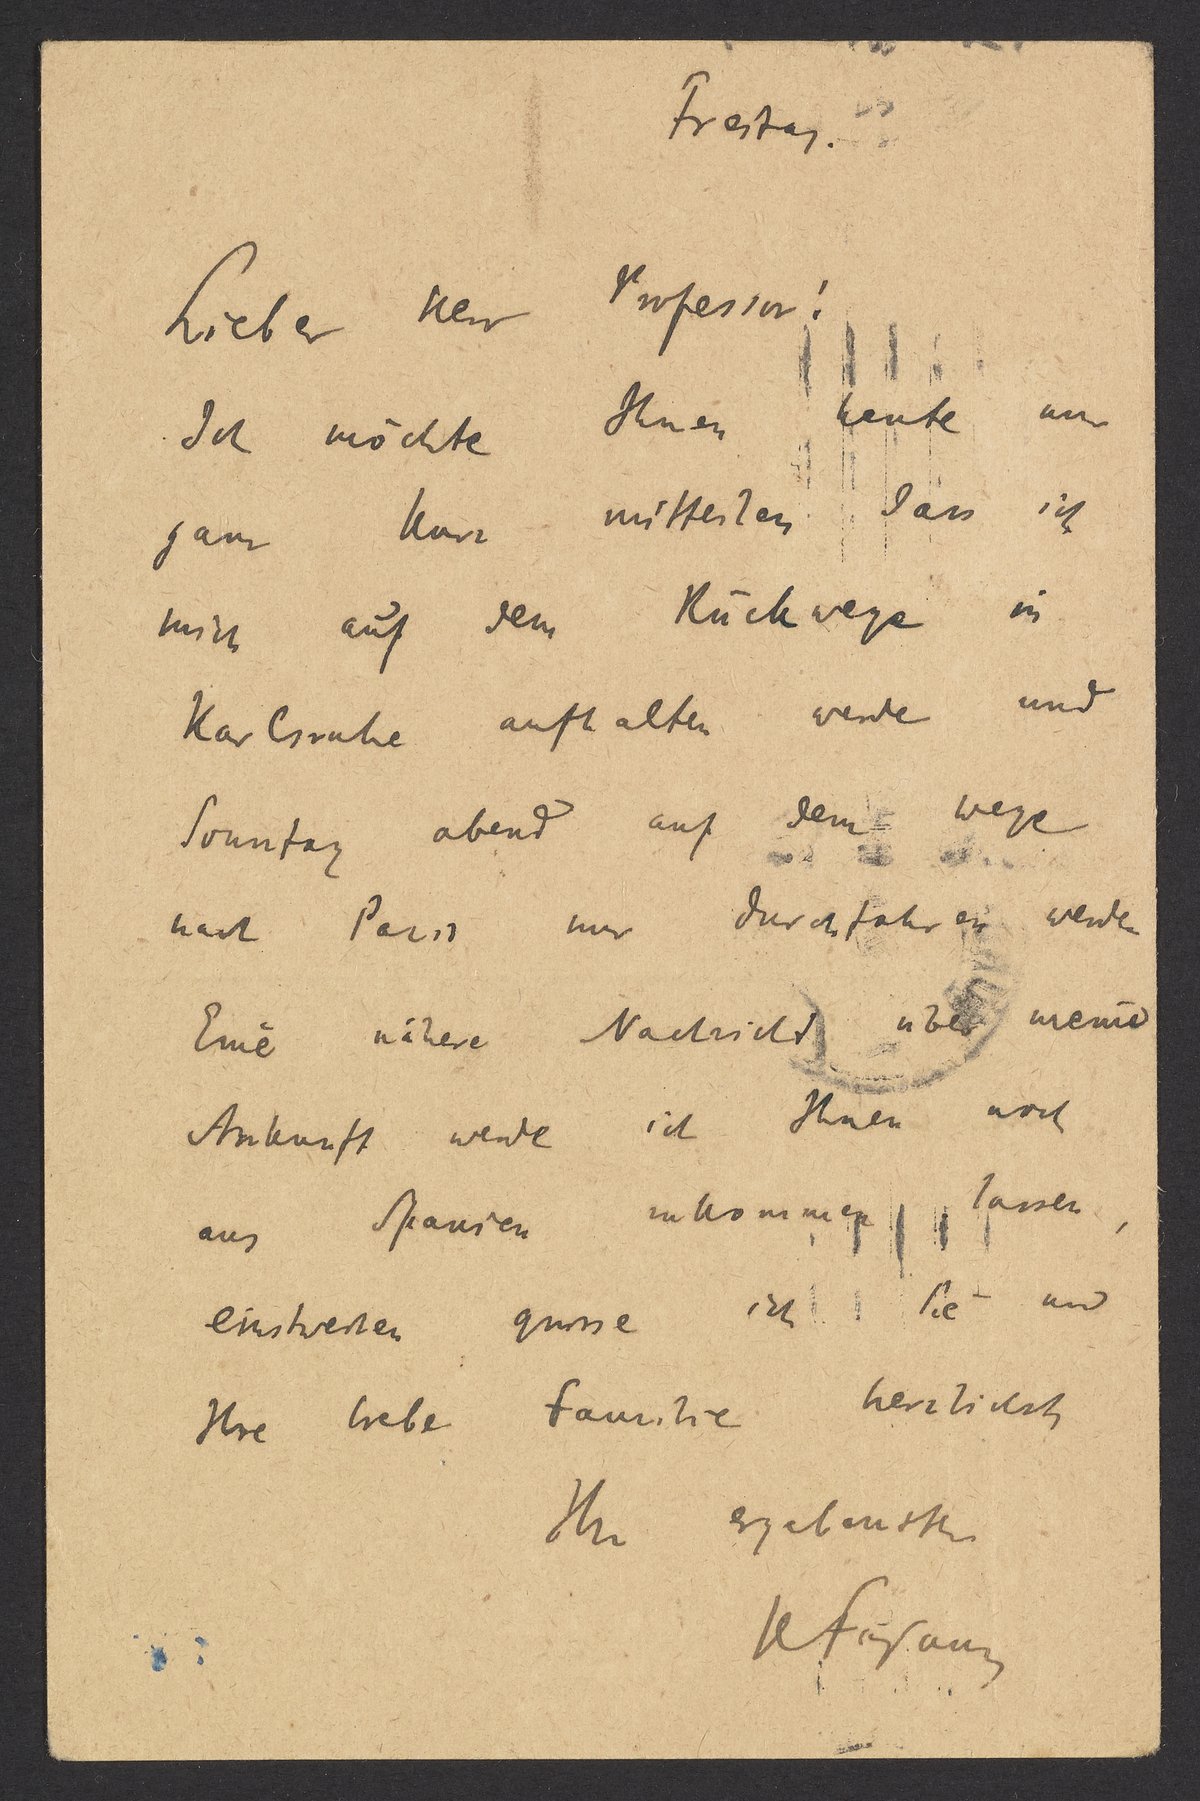 Freitag.
Lieber Herr Professor!
Ich möchte Ihnen heute nur
ganz kurz mitteilen dass ich
mich auf dem Rückwege in
Karlsruhe aufhalten werde und
Sonntag abend auf dem Wege
nach Paris nur durchfahren werde
Eine nähere Nachricht über meine
Ankunft werde ich Ihnen noch
aus Spanien zukommen lassen,
einstweilen grüsse ich Sie und
Ihre liebe Familie herzlichst
Ihr ergebenster